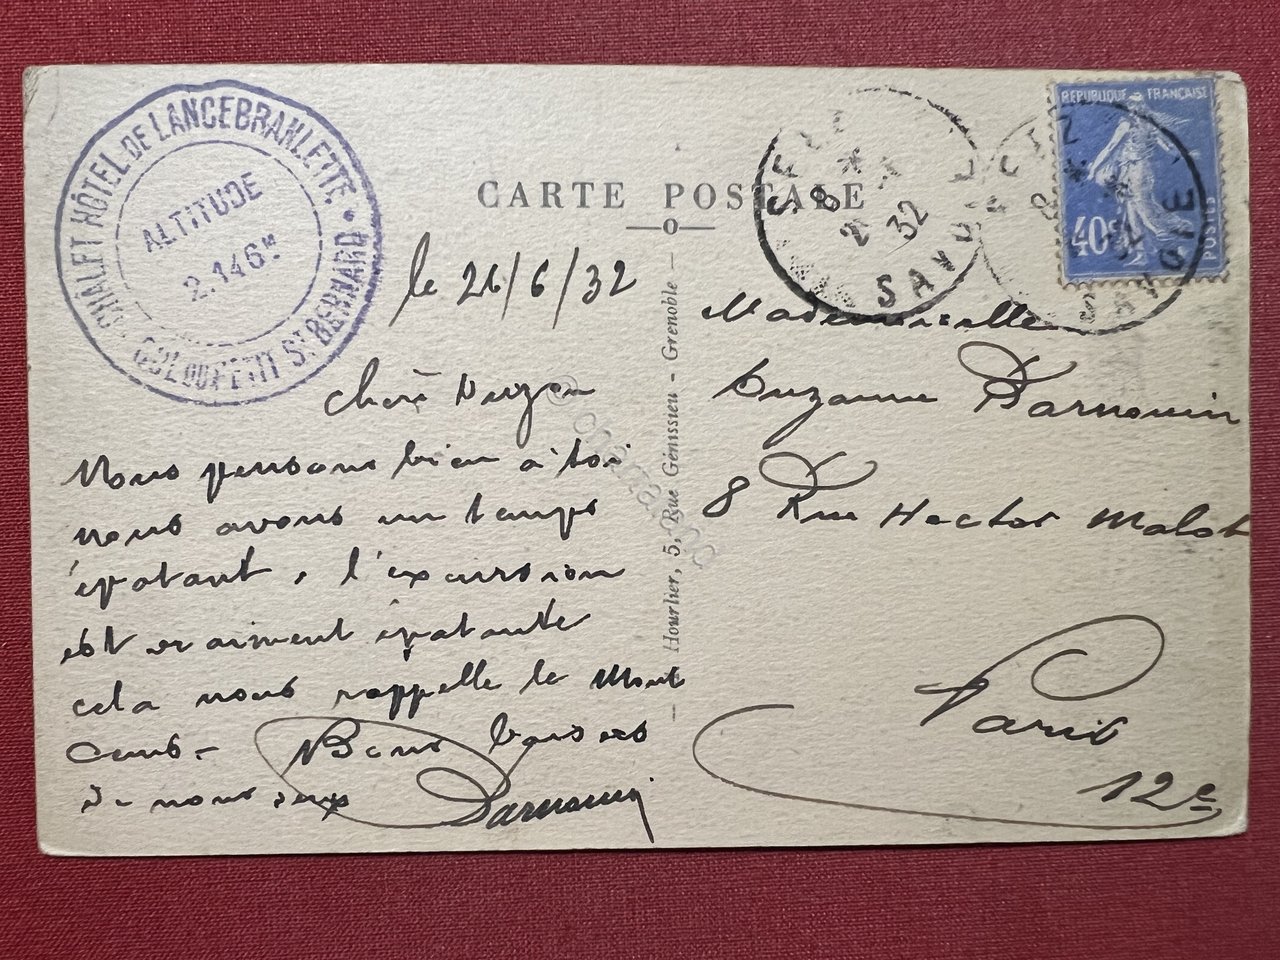 CHÂLET HÔTEL DE LANCEBRANLETTE • COL DU PETIT St BERNARD
ALTITUDE
2.146m
CARTE POSTALE
SAVOIE
32
REPUBLIQUE FRANÇAISE
40c
POSTES
le 26/6/32
Chère Suzon
Nous pensons bien à toi
nous avons un temps
épatant, l'excursion
est vraiment épatante
cela nous rappelle le Mont
Cenis - Bons baisers
de nous deux
Darnouin
Hourlier, 5, Rue Génissieu - Grenoble
Mademoiselle
Suzanne Darnouin
8 Rue Hector Malot
Paris
12e